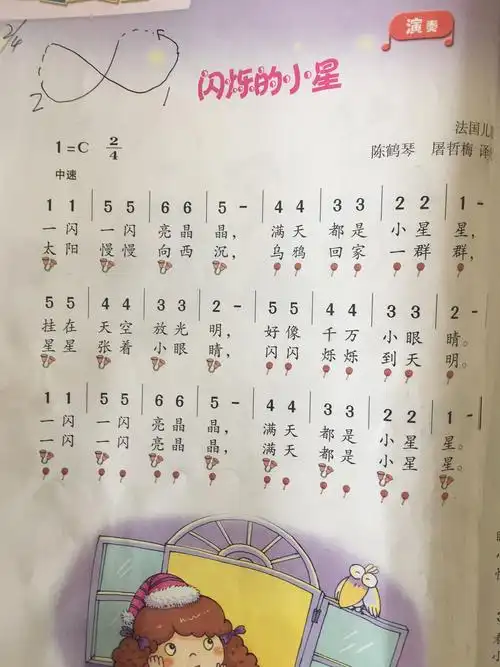 2/4
演奏
2 1
闪烁的小星
法国儿
1=C 2/4
陈鹤琴 屠哲梅 译
中速
1 1 | 5 5 | 6 6 | 5 - | 4 4 | 3 3 | 2 2 | 1 -
一闪 一闪 亮晶 晶， 满天 都是 小星 星，
太阳 慢慢 向西 沉， 乌鸦 回家 一群 群，
5 5 | 4 4 | 3 3 | 2 - | 5 5 | 4 4 | 3 3 | 2 -
挂在 天空 放光 明， 好像 千万 小眼 睛。
星星 张着 小眼 睛， 闪闪 烁烁 到天 明。
1 1 | 5 5 | 6 6 | 5 - | 4 4 | 3 3 | 2 2 | 1 -
一闪 一闪 亮晶 晶， 满天 都是 小星 星。
一闪 一闪 亮晶 晶， 满天 都是 小星 星。